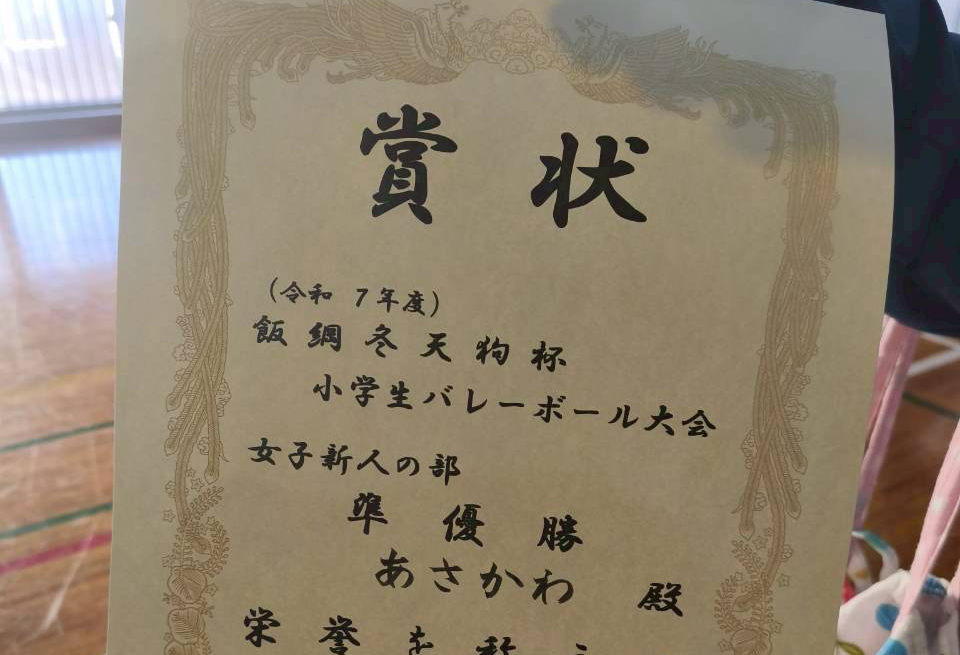 賞状
(令和 7年度)
飯綱冬天狗杯
小学生バレーボール大会
女子新人の部
準優勝
あさかわ 殿
栄誉を称え